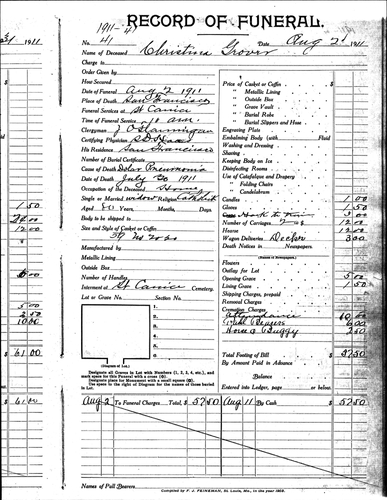 1911-41
RECORD OF FUNERAL.
No. 41
Date Aug 2 1911
Name of Deceased Christina Grover
Charge to
Order Given by
How Secured
Date of Funeral Aug 2 1911
Place of Death San Francisco
Funeral Services at St
Time of Funeral Service 10 am.
Clergyman J O
Certifying Physician
His Residence San Francisco
Number of Burial Certificate
Cause of Death Lobar Pneumonia
Date of Death July 30 1911
Occupation of the Deceased
Single or Married widow Religion Catholic
Aged 80 Years, Months, Days.
Body to be shipped to
Size and Style of Casket or Coffin
Manufactured by
Metallic Lining
Outside Box
Number of Handles
Interment at St Cemetery
Lot or Grave No. Section No.
1.
2.
3.
4.
5.
6.
(Diagram of Lot.)
Designate all Graves in Lot with Numbers (1, 2, 3, 4, etc.), and
mark space for this Funeral with a cross
Designate place for Monument with a small square
Use space to the right of Diagram for the names of those buried
in Lot.
Price of Casket or Coffin
" Metallic Lining
" Outside Box
" Grave Vault
" Burial Robe
" Burial Slippers and Hose
Engraving Plate
Embalming Body (with Fluid
Washing and Dressing
Shaving
Keeping Body on Ice
Disinfecting Rooms
Use of Catafalque and Drapery
" Folding Chairs
" Candelabrum
Candles 1 00
Gloves 1 50
Hack to 3 00
Number of Carriages
Hearse 12 00
Wagon Deliveries Decker 3 00
Death Notices in Newspapers
(Names of Newspapers.)
Flowers
Outlay for Lot
Opening Grave 5 00
Lining Grave 1 50
Shipping Charges, prepaid
Removal Charges
Cremation Charges
Attendance 10 00
Pall Bearers 6 00
Horse & Buggy 2 50
Total Footing of Bill 57 50
By Amount Paid in Advance
Balance
Entered into Ledger, page or below.
Aug 2 To Funeral Charges Total, 57 50 Aug 11 By Cash 57 50
Names of Pall Bearers
Compiled by F. J. FEINEMAN, St. Louis, Mo.
1911
1 50
12 00
5 00
2 50
10 00
61 00
61 00